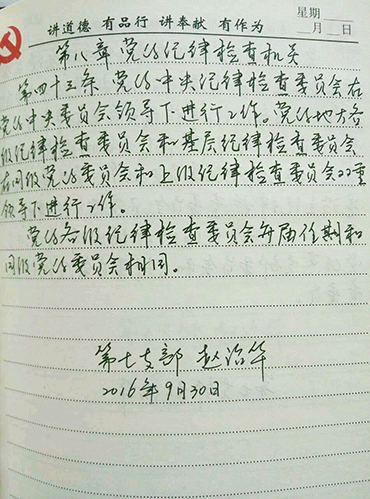 讲道德 有品行 讲奉献 有作为
星期
月 日
第八章党的纪律检查机关
第四十三条 党的中央纪律检查委员会在
党的中央委员会领导下进行工作。党的地方各
级纪律检查委员会和基层纪律检查委员会
在同级党的委员会和上级纪律检查委员会双重
领导下进行工作。
党的各级纪律检查委员会每届任期和
同级党的委员会相同。
第七支部 赵治华
2016年9月30日